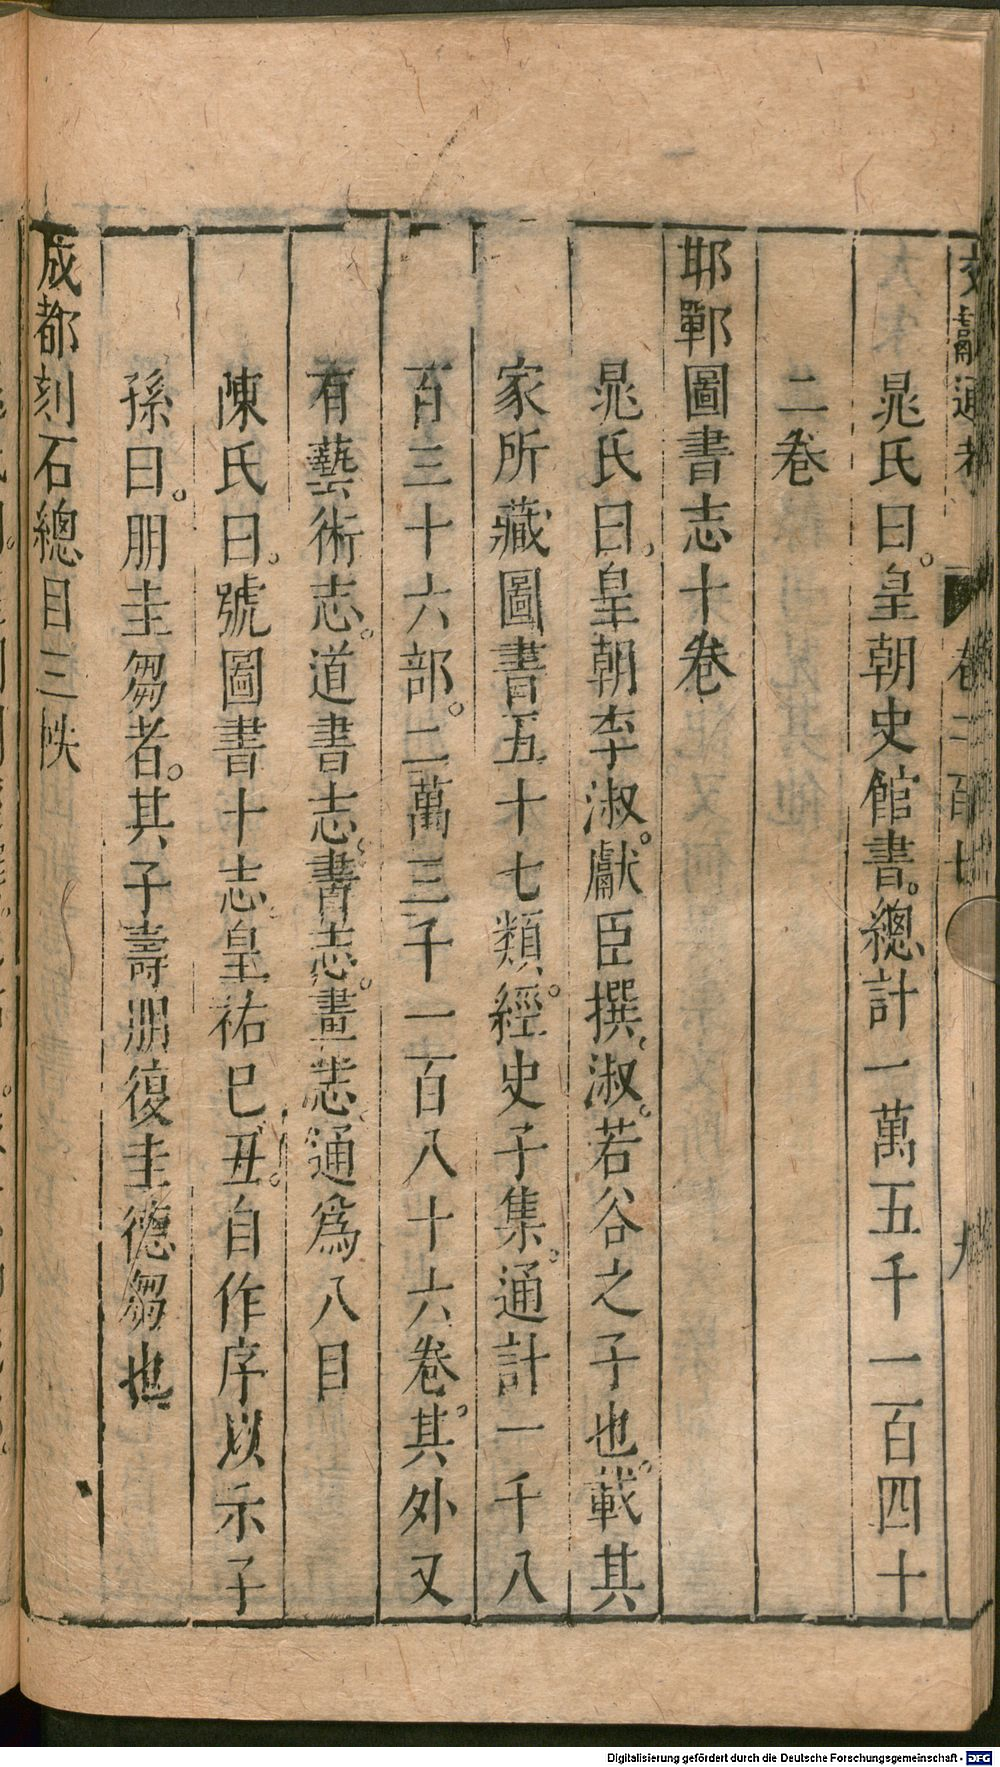 文獻通考 卷二百七 九
晁氏曰。皇朝史館書。總計一萬五千一百四十
二卷
邯鄲圖書志十卷
晁氏曰。皇朝李淑。獻臣撰。淑。若谷之子也。載其
家所藏圖書五十七類。經史子集。通計一千八
百三十六部。二萬三千一百八十六卷。其外又
有藝術志。道書志。書志。畫志。通爲八目
陳氏曰。號圖書十志。皇祐己丑。自作序以示子
孫曰。朋圭芻者。其子壽朋復圭德芻也
成都刻石總目三帙
Digitalisierung gefördert durch die Deutsche Forschungsgemeinschaft - DFG